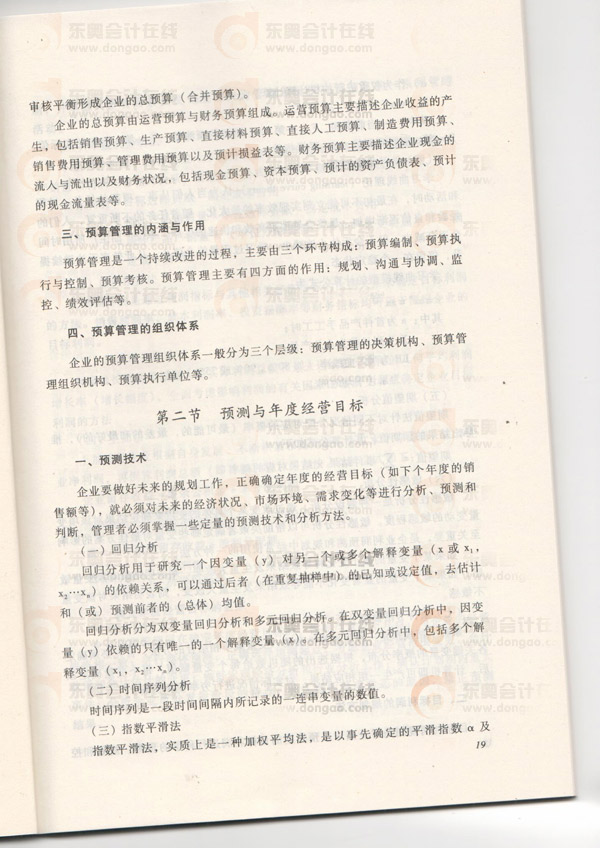 审核平衡形成企业的总预算（合并预算）。
企业的总预算由运营预算与财务预算组成。运营预算主要描述企业收益的产
生，包括销售预算、生产预算、直接材料预算、直接人工预算、制造费用预算、
销售费用预算、管理费用预算以及预计损益表等。财务预算主要描述企业现金的
流入与流出以及财务状况，包括现金预算、资本预算、预计的资产负债表、预计
的现金流量表等。
三、预算管理的内涵与作用
预算管理是一个持续改进的过程，主要由三个环节构成：预算编制、预算执
行与控制、预算考核。预算管理主要有四方面的作用：规划、沟通与协调、监
控、绩效评估等。
四、预算管理的组织体系
企业的预算管理组织体系一般分为三个层级：预算管理的决策机构、预算管
理组织机构、预算执行单位等。
第二节 预测与年度经营目标
一、预测技术
企业要做好未来的规划工作，正确确定年度的经营目标（如下个年度的销
售额等），就必须对未来的经济状况、市场环境、需求变化等进行分析、预测和
判断，管理者必须掌握一些定量的预测技术和分析方法。
（一）回归分析
回归分析用于研究一个因变量（y）对另一个或多个解释变量（x 或 x₁，
x₂…xₙ）的依赖关系，可以通过后者（在重复抽样中）的已知或设定值，去估计
和（或）预测前者的（总体）均值。
回归分析分为双变量回归分析和多元回归分析。在双变量回归分析中，因变
量（y）依赖的只有唯一的一个解释变量（x）。在多元回归分析中，包括多个解
释变量（x₁，x₂…xₙ）。
（二）时间序列分析
时间序列是一段时间间隔内所记录的一连串变量的数值。
（三）指数平滑法
指数平滑法，实质上是一种加权平均法，是以事先确定的平滑指数 α 及
19
东奥会计在线
www.dongao.com